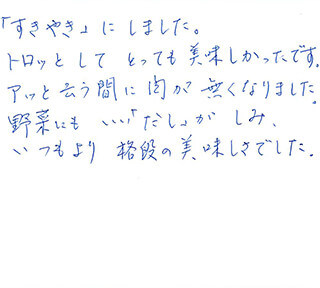 「すきやき」にしました。
トロッとして とっても美味しかったです。
アッと云う間に肉が無くなりました。
野菜にも いい「だし」が しみ、
いつもより 格段の美味しさでした。